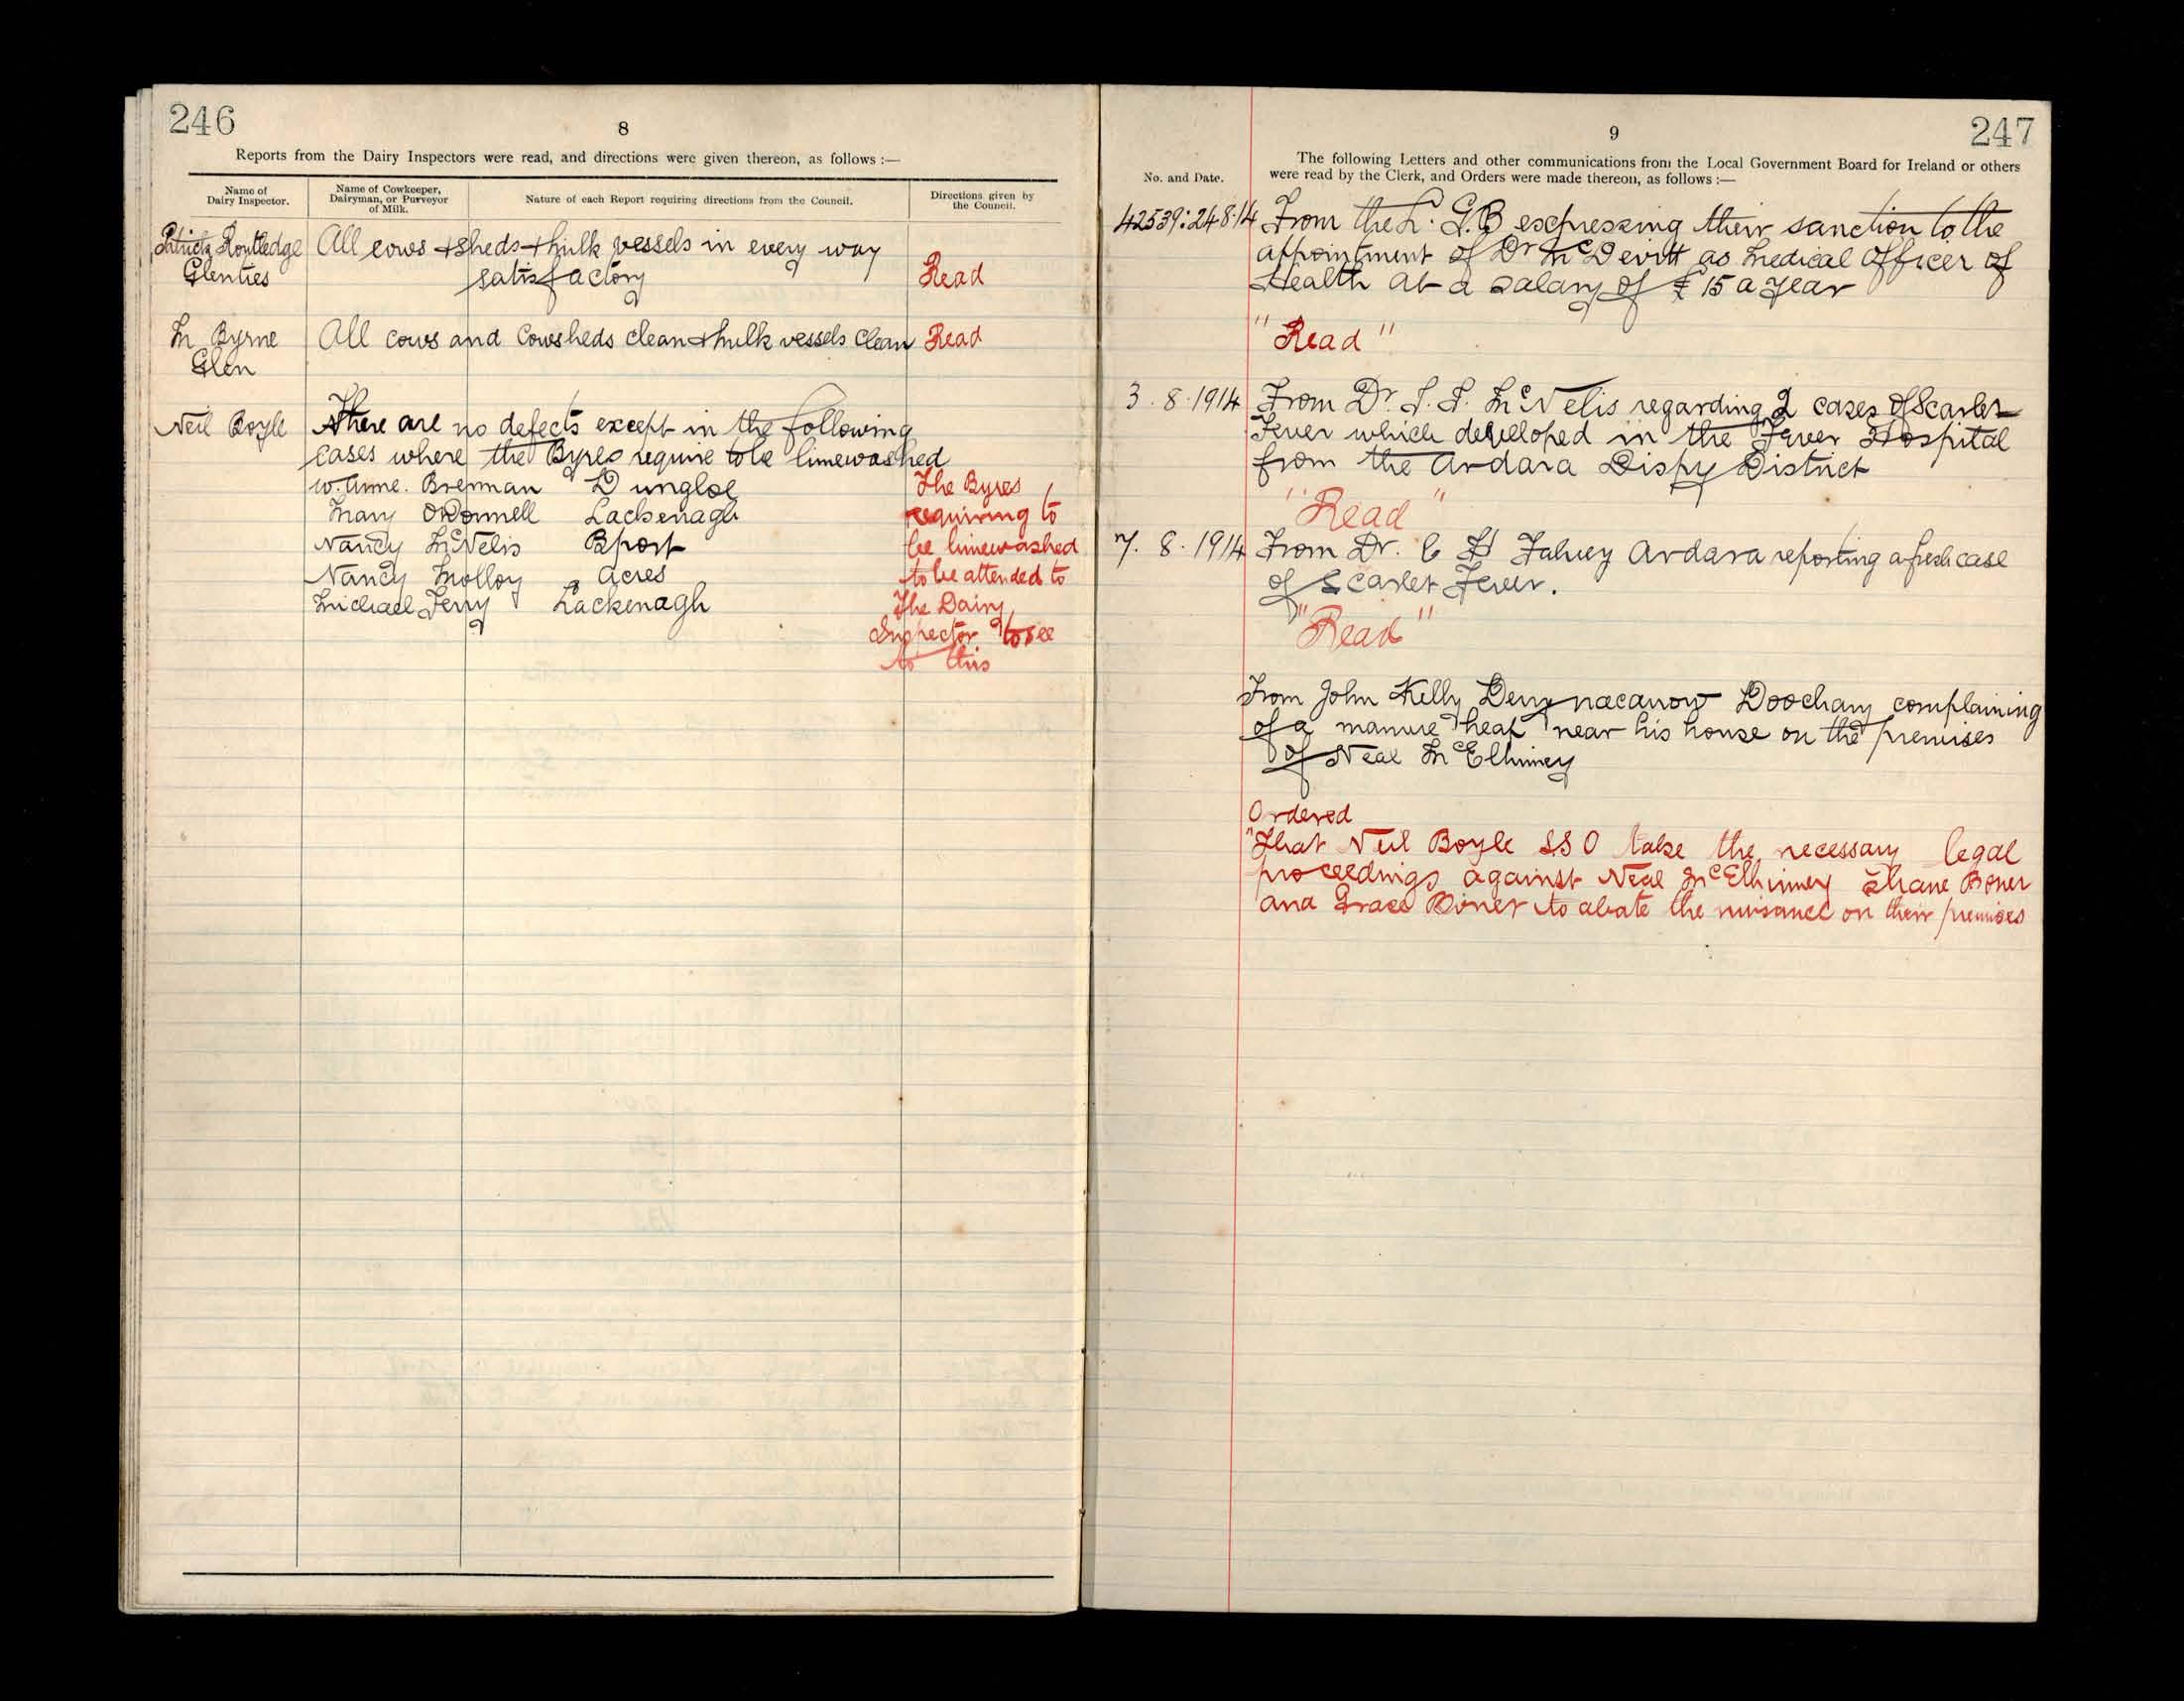 246
8
Reports from the Dairy Inspectors were read, and directions were given thereon, as follows :—
Name of
Dairy Inspector.
Name of Cowkeeper,
Dairyman, or Purveyor
of Milk.
Nature of each Report requiring directions from the Council.
Directions given by
the Council.
Patrick Routledge
Glenties
All cows + sheds + milk vessels in every way
satisfactory
Read
M Byrne
Glen
All cows and Cowsheds clean + milk vessels clean
Read
Neil Boyle
There are no defects except in the following
cases where the Byres require to be limewashed
W. Anne. Brennan Dungloe
Mary O'Donnell Lackenagh
Nancy McNelis Bport
Nancy Molloy Acres
Michael Ferry Lackenagh
The Byres
requiring to
be limewashed
to be attended to
The Dairy
Inspector to see
to this
247
9
No. and Date.
The following Letters and other communications from the Local Government Board for Ireland or others
were read by the Clerk, and Orders were made thereon, as follows :—
42539:24.8.14 From the L. G. B expressing their sanction to the
appointment of Dr McDevitt as Medical Officer of
Health at a salary of £15 a year
"Read"
3.8.1914 From Dr. McNelis regarding 2 cases of Scarlet
Fever which developed in the Fever Hospital
from the Ardara Dispy District
"Read"
7.8.1914 From Dr. C H Falvey Ardara reporting a fresh case
of Scarlet Fever.
"Read"
From John Kelly Derrynacarrow Doochary complaining
of a manure heap near his house on the premises
of Neal McElhinney
Ordered
"That Neil Boyle SSO take the necessary legal
proceedings against Neal McElhinney Shane Boner
and Grace Boner to abate the nuisance on their premises